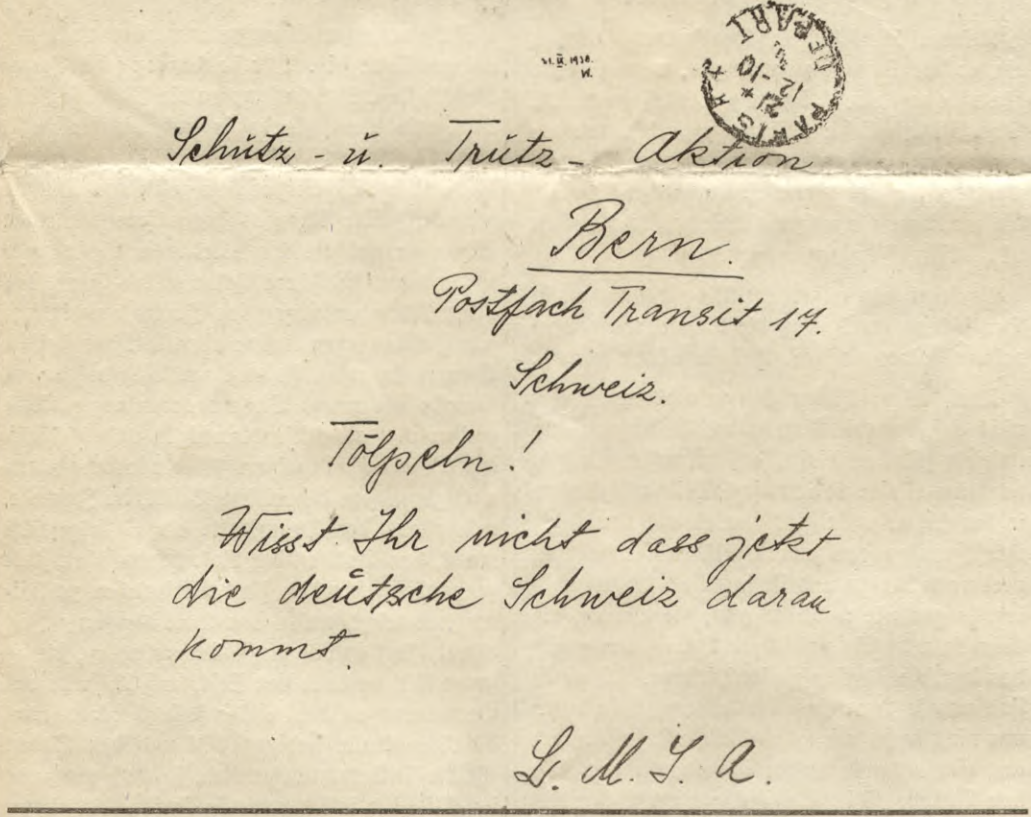 PARIS
DEPART
12-10
21
Schutz - u. Trutz - Aktion
Bern.
Postfach Transit 17.
Schweiz.
Tölpeln!
Wisst Ihr nicht dass jetzt
die deutsche Schweiz daran
kommt.
L. M. I. A.